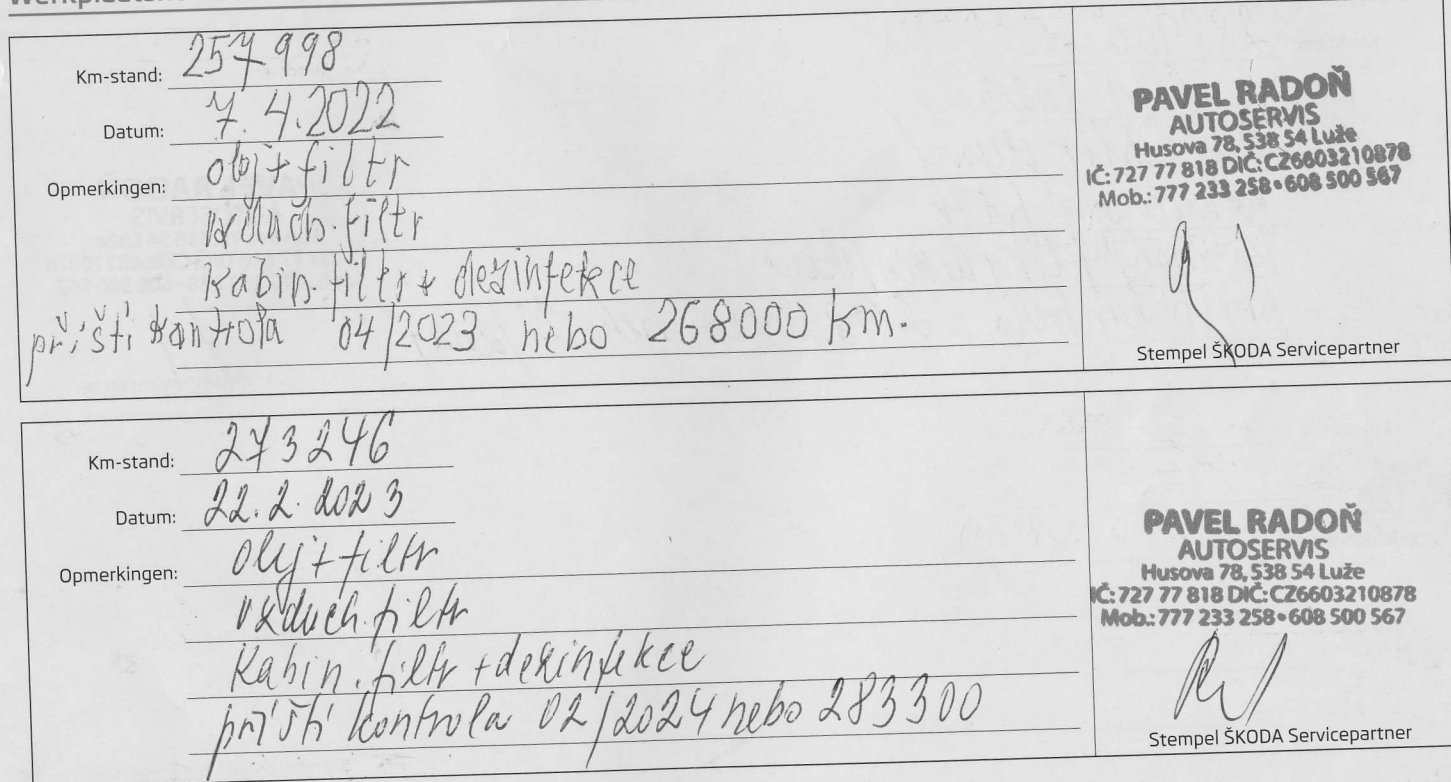 Km-stand: 257998
Datum: 7.4.2022
Opmerkingen: olej+filtr
vzduch.filtr
Kabin.filtr+ dezinfekce
příští kontrola 04/2023 nebo 268000 km.
PAVEL RADOŇ
AUTOSERVIS
Husova 78, 538 54 Luže
IČ: 727 77 818 DIČ: CZ6603210878
Mob.: 777 233 258 • 608 500 567
Stempel ŠKODA Servicepartner
Km-stand: 273246
Datum: 22.2.2023
Opmerkingen: Olej+filtr
vzduch.filtr
Kabin.filtr +dezinfekce
příští kontrola 02/2024 nebo 283300
PAVEL RADOŇ
AUTOSERVIS
Husova 78, 538 54 Luže
IČ: 727 77 818 DIČ: CZ6603210878
Mob.: 777 233 258 • 608 500 567
Stempel ŠKODA Servicepartner